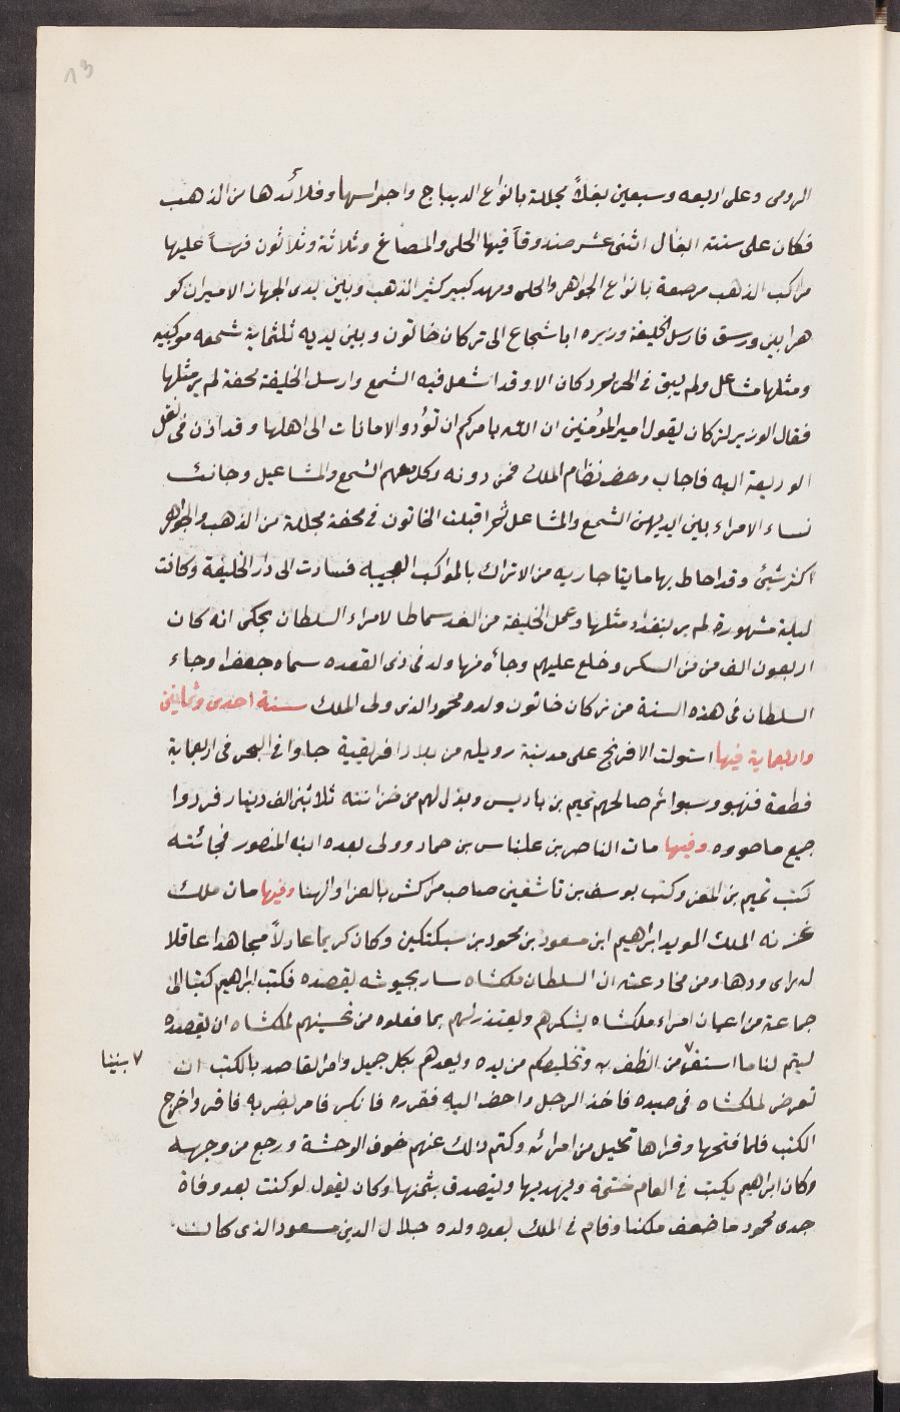 13
الرومى وعلى اربعه وسبعين بغلاً مجللة بانواع الديباج واجراسها وقلائدها من الذهب
فكان على ستته البغال اثنى عشر صندوقاً فيها الحلى والمصاغ وثلاثة وثلاثون فرساً عليها
مراكب الذهب مرصعة بانواع الجواهر والحلى ومهد كبير كثير الذهب وبلين يدى الجهاز الاميران كو
هرابين ورسق فارسل الخليفة وزيره ابا شجاع الى تركان خاتون وبين يديه ثلثماية شمعه موكبيه
ومثلها مشاعل ولم يبق فى الحريم دكان الا وقد اشعل فيه الشمع وارسل الخليفة محفة لم ير مثلها
فقال الوزير لتركان يقول امير المؤمنين ان الله يامركم ان تؤدو الامانات الى اهلها وقد اذن فى نقل
الوديعة اليه فاجاب وحضر نظام الملك فمن دونه وكل معهم الشمع والمشاعيل وجائت
نساء الامراء بين ايديهن الشمع والمشاعل ثم اقبلت الخاتون فى محفة مجللة من الذهب والجواهر
اكثر شيئ وقد احاط بها مايتا جاريه من الاتراك بالمراكب العجيبه فسارت الى دار الخليفة وكانت
ليلة مشهورة لم ير ببغداد مثلها وعمل الخليفة من الغد سماطا لامراء السلطان يحكى انه كان
اربعون الف من من السكر وخلع عليهم وجأه منها ولد فى ذى القعده سماه جعفرا وجاء
السلطان فى هذه السنة من تركان خاتون ولدو محمود الذى ولى الملك سنة احدى وثمانين
واربعماية فيها استولت الافرنج على مدينة رويله من بلاد افريقية جاوا فى البحر فى اربعماية
قطعة فنهبو وسبوا ثم صالحهم تميم بن باديس وبذل لهم من خزانته ثلاثين الف دينار فردوا
جميع ما حووه وفيها مات الناصر بن علناس بن حماد وولى بعده ابنه المنصور فجائته
كتب تميم بن المعز وكتب يوسف بن تاشفين صاحب مراكش بالعزا والهنا وفيها مات ملك
غزنه الملك المويد ابراهيم ابن مسعود بن محمود بن سبكتكين وكان كريما عادلاً مجاهدا عاقلا
له راى ودها ومن مخادعته ان السلطان ملكشاه سار بجيوشه يقصده فكتب ابراهيم كتبا الى
جماعة من اعيان امراء ملكشاه يشكرهم ويعتذر لهم بما فعلوه من تحسينهم لملكشاه ان يقصده
ليتم لنا ما استقر ٧ من الظفر به وتخليصكم من يده ويعدهم بكل جميل وامر القاصد بالكتب ان
٧ بيننا
تعرض لملكشاه فى صيده فاخذ الرجل واحضر اليه فقرره فانكر فامر بضربه فاقر واخرج
الكتب فلما فتحها وقراها تخيل من امرائه وكتم ذلك عنهم خوف الوحشة ورجع من وجهه
وكان ابراهيم يكتب فى العام ختمة ويهديها ويتصدق بثمنها وكان يقول لو كنت بعد وفاة
جدى محمود ما ضعف ملكنا وقام فى الملك بعده ولده جلال الدين مسعود الذى كان